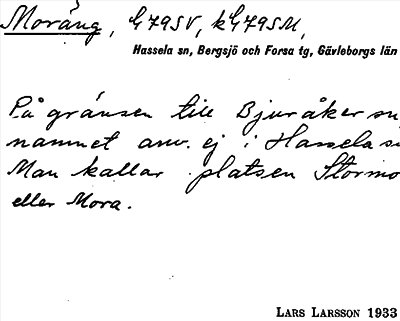 Moräng, G79SV, kG79SM,
Hassela sn, Bergsjö och Forsa tg, Gävleborgs län
På gränsen till Bjuråker sn
namnet anv. ej i Hassela s
Man kallar platsen Stormo
eller Mora.
LARS LARSSON 1933